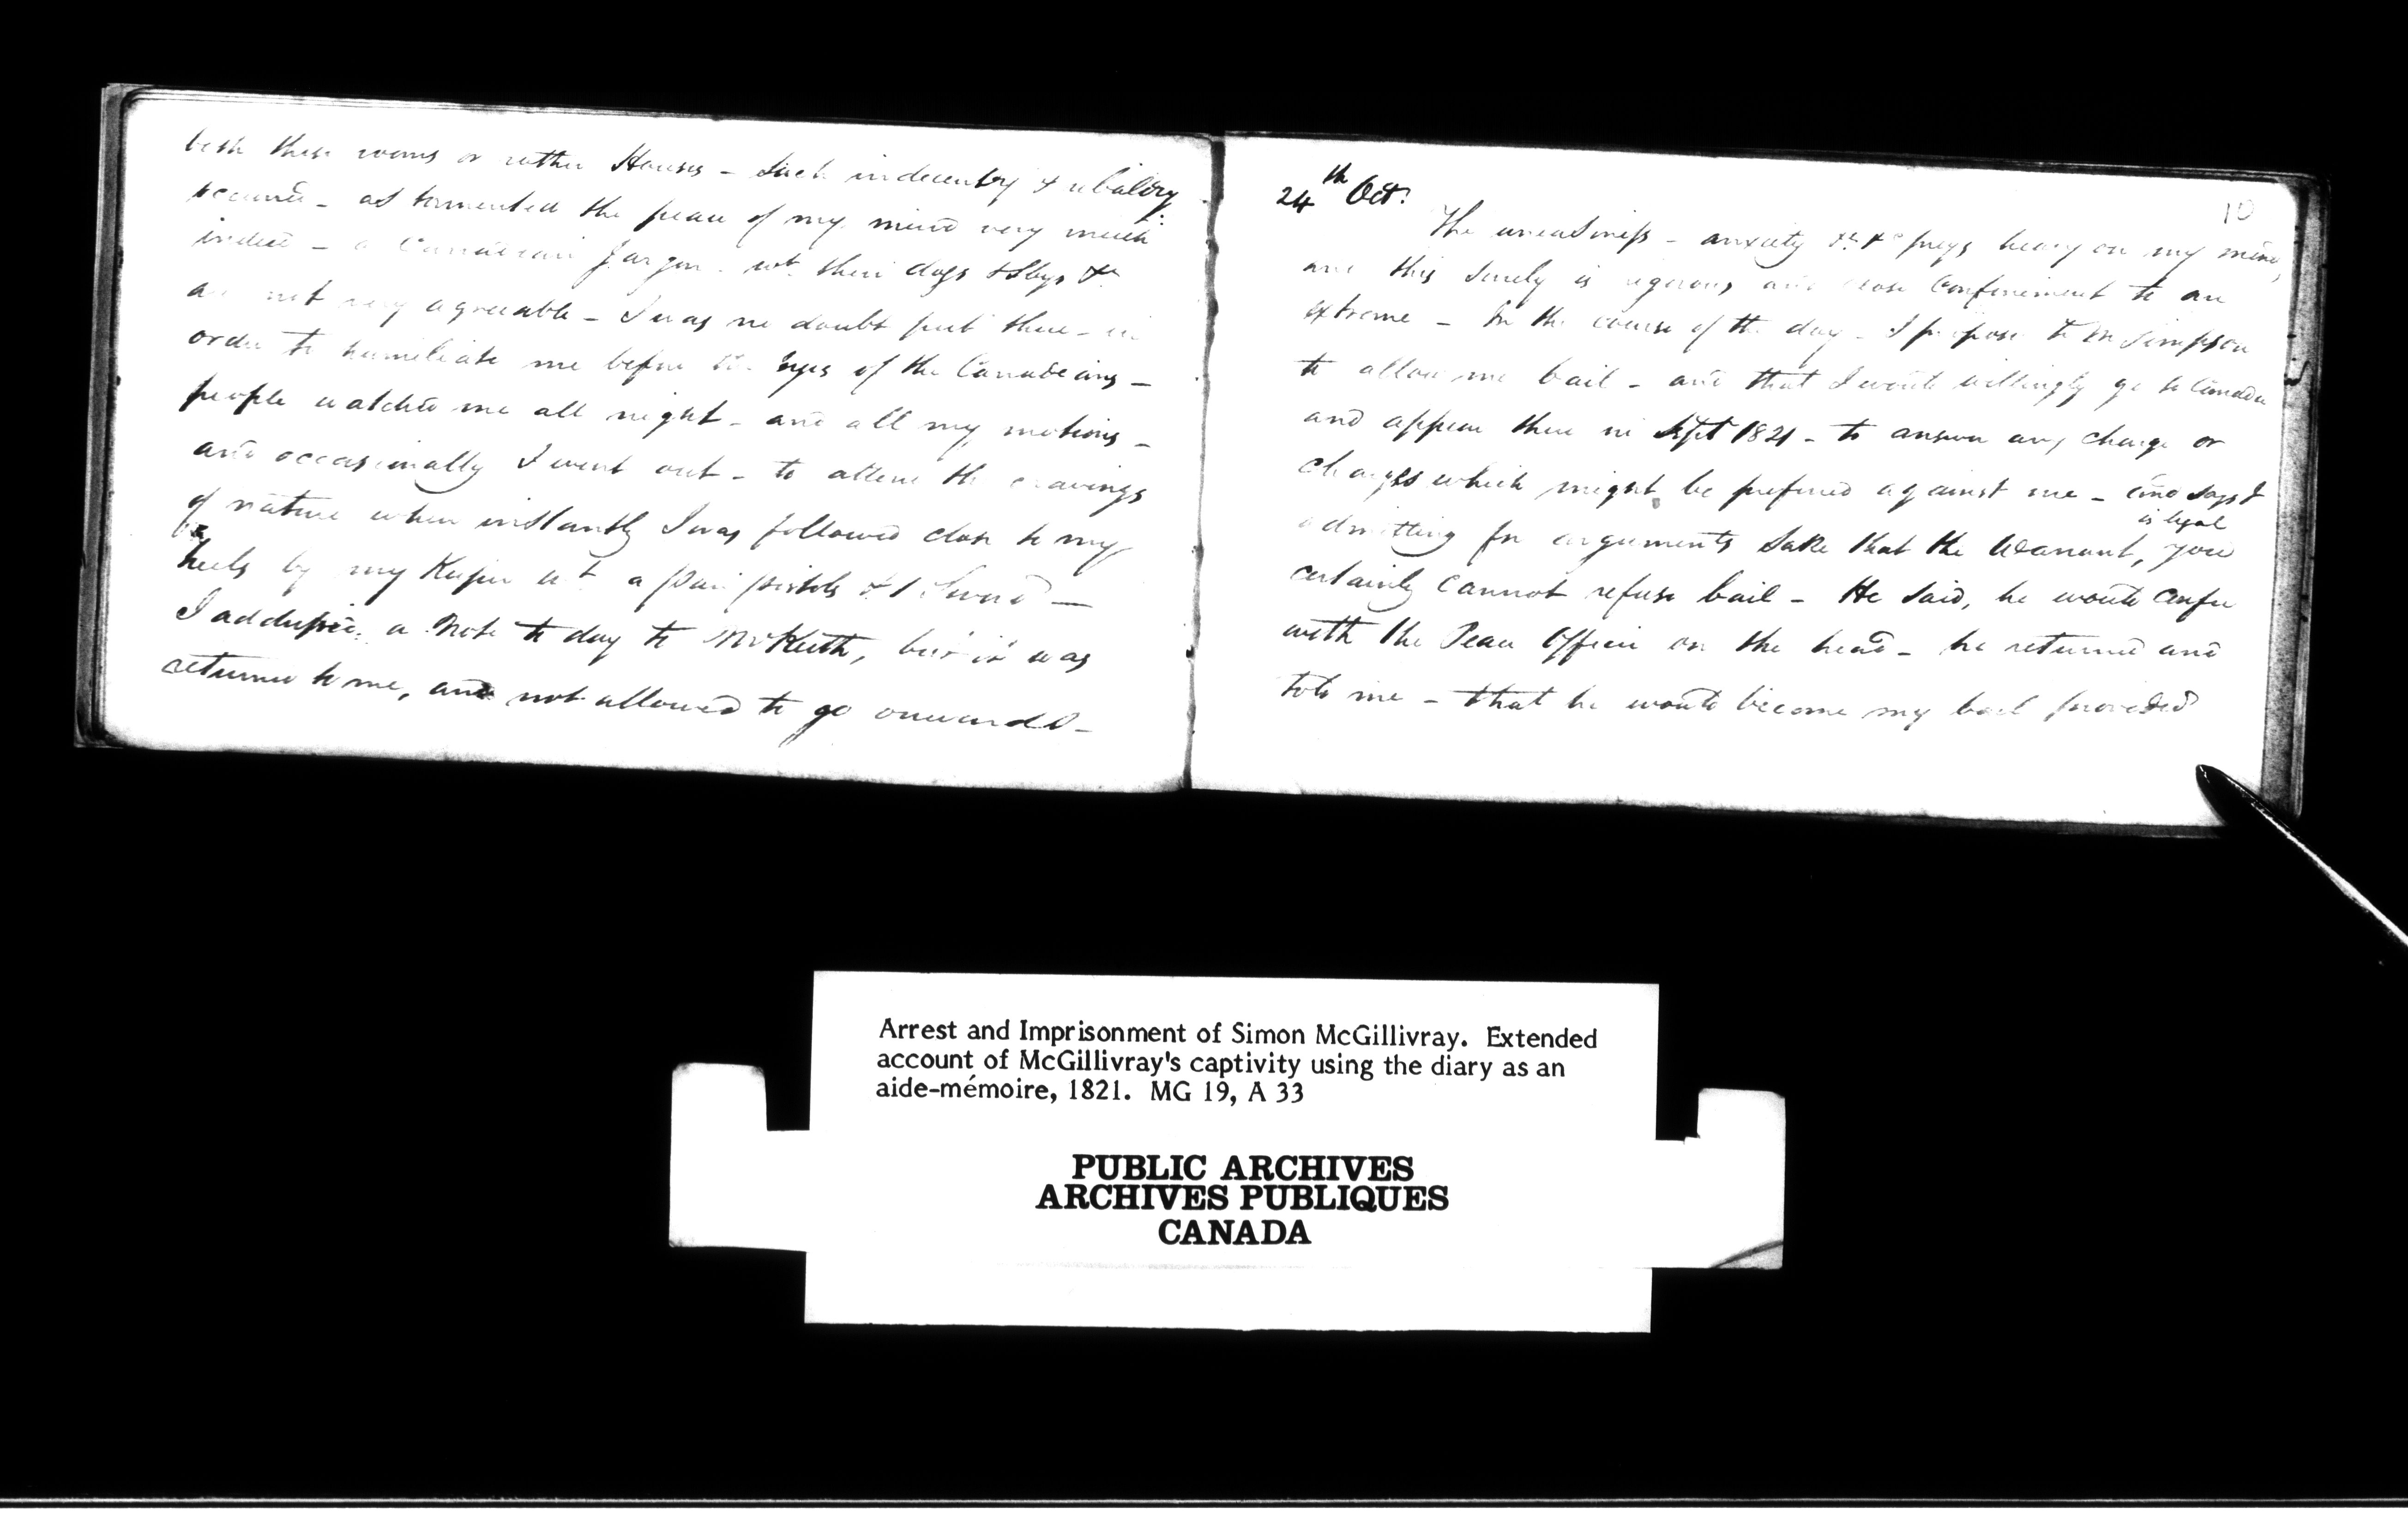 both these rooms or rather Houses - Such indecentcy & ribaldry
occurred - as tormented the peace of my mind very much
indeed - a Canadian Jargon. wt. their dogs & Sbys &c
are not very agreeable - I was no doubt put there - in
order to humiliate me before the eyes of the Canadians -
people watched me all night - and all my motions -
and occasionally I went out - to attend the cravings
of nature when instantly I was followed close to my
heels by my Keeper wt a pair pistols & 1 Sword —
I addressed a Note to day to Mr Keith, but it was
returned to me, and not allowed to go onwards -
10
24th Oct.
The uneasiness - anxiety &c &c preys heavy on my mind,
and this surely is rigorous, and close Confinement to an
extreme - In the course of the day - I propose to Mr Simpson
to allow me bail - and that I would willingly go to Canada
and appear there in Sept 1821 - to answer any charge or
charges which might be prefered against me - and says I
is legal
admitting for arguments Sake that the Warrant, you
certainly Cannot refuse bail - He Said, he would Confer
with the Peace Officer on the head - he returned and
told me - that he would become my bail provided
Arrest and Imprisonment of Simon McGillivray. Extended
account of McGillivray's captivity using the diary as an
aide-mémoire, 1821. MG 19, A 33
PUBLIC ARCHIVES
ARCHIVES PUBLIQUES
CANADA